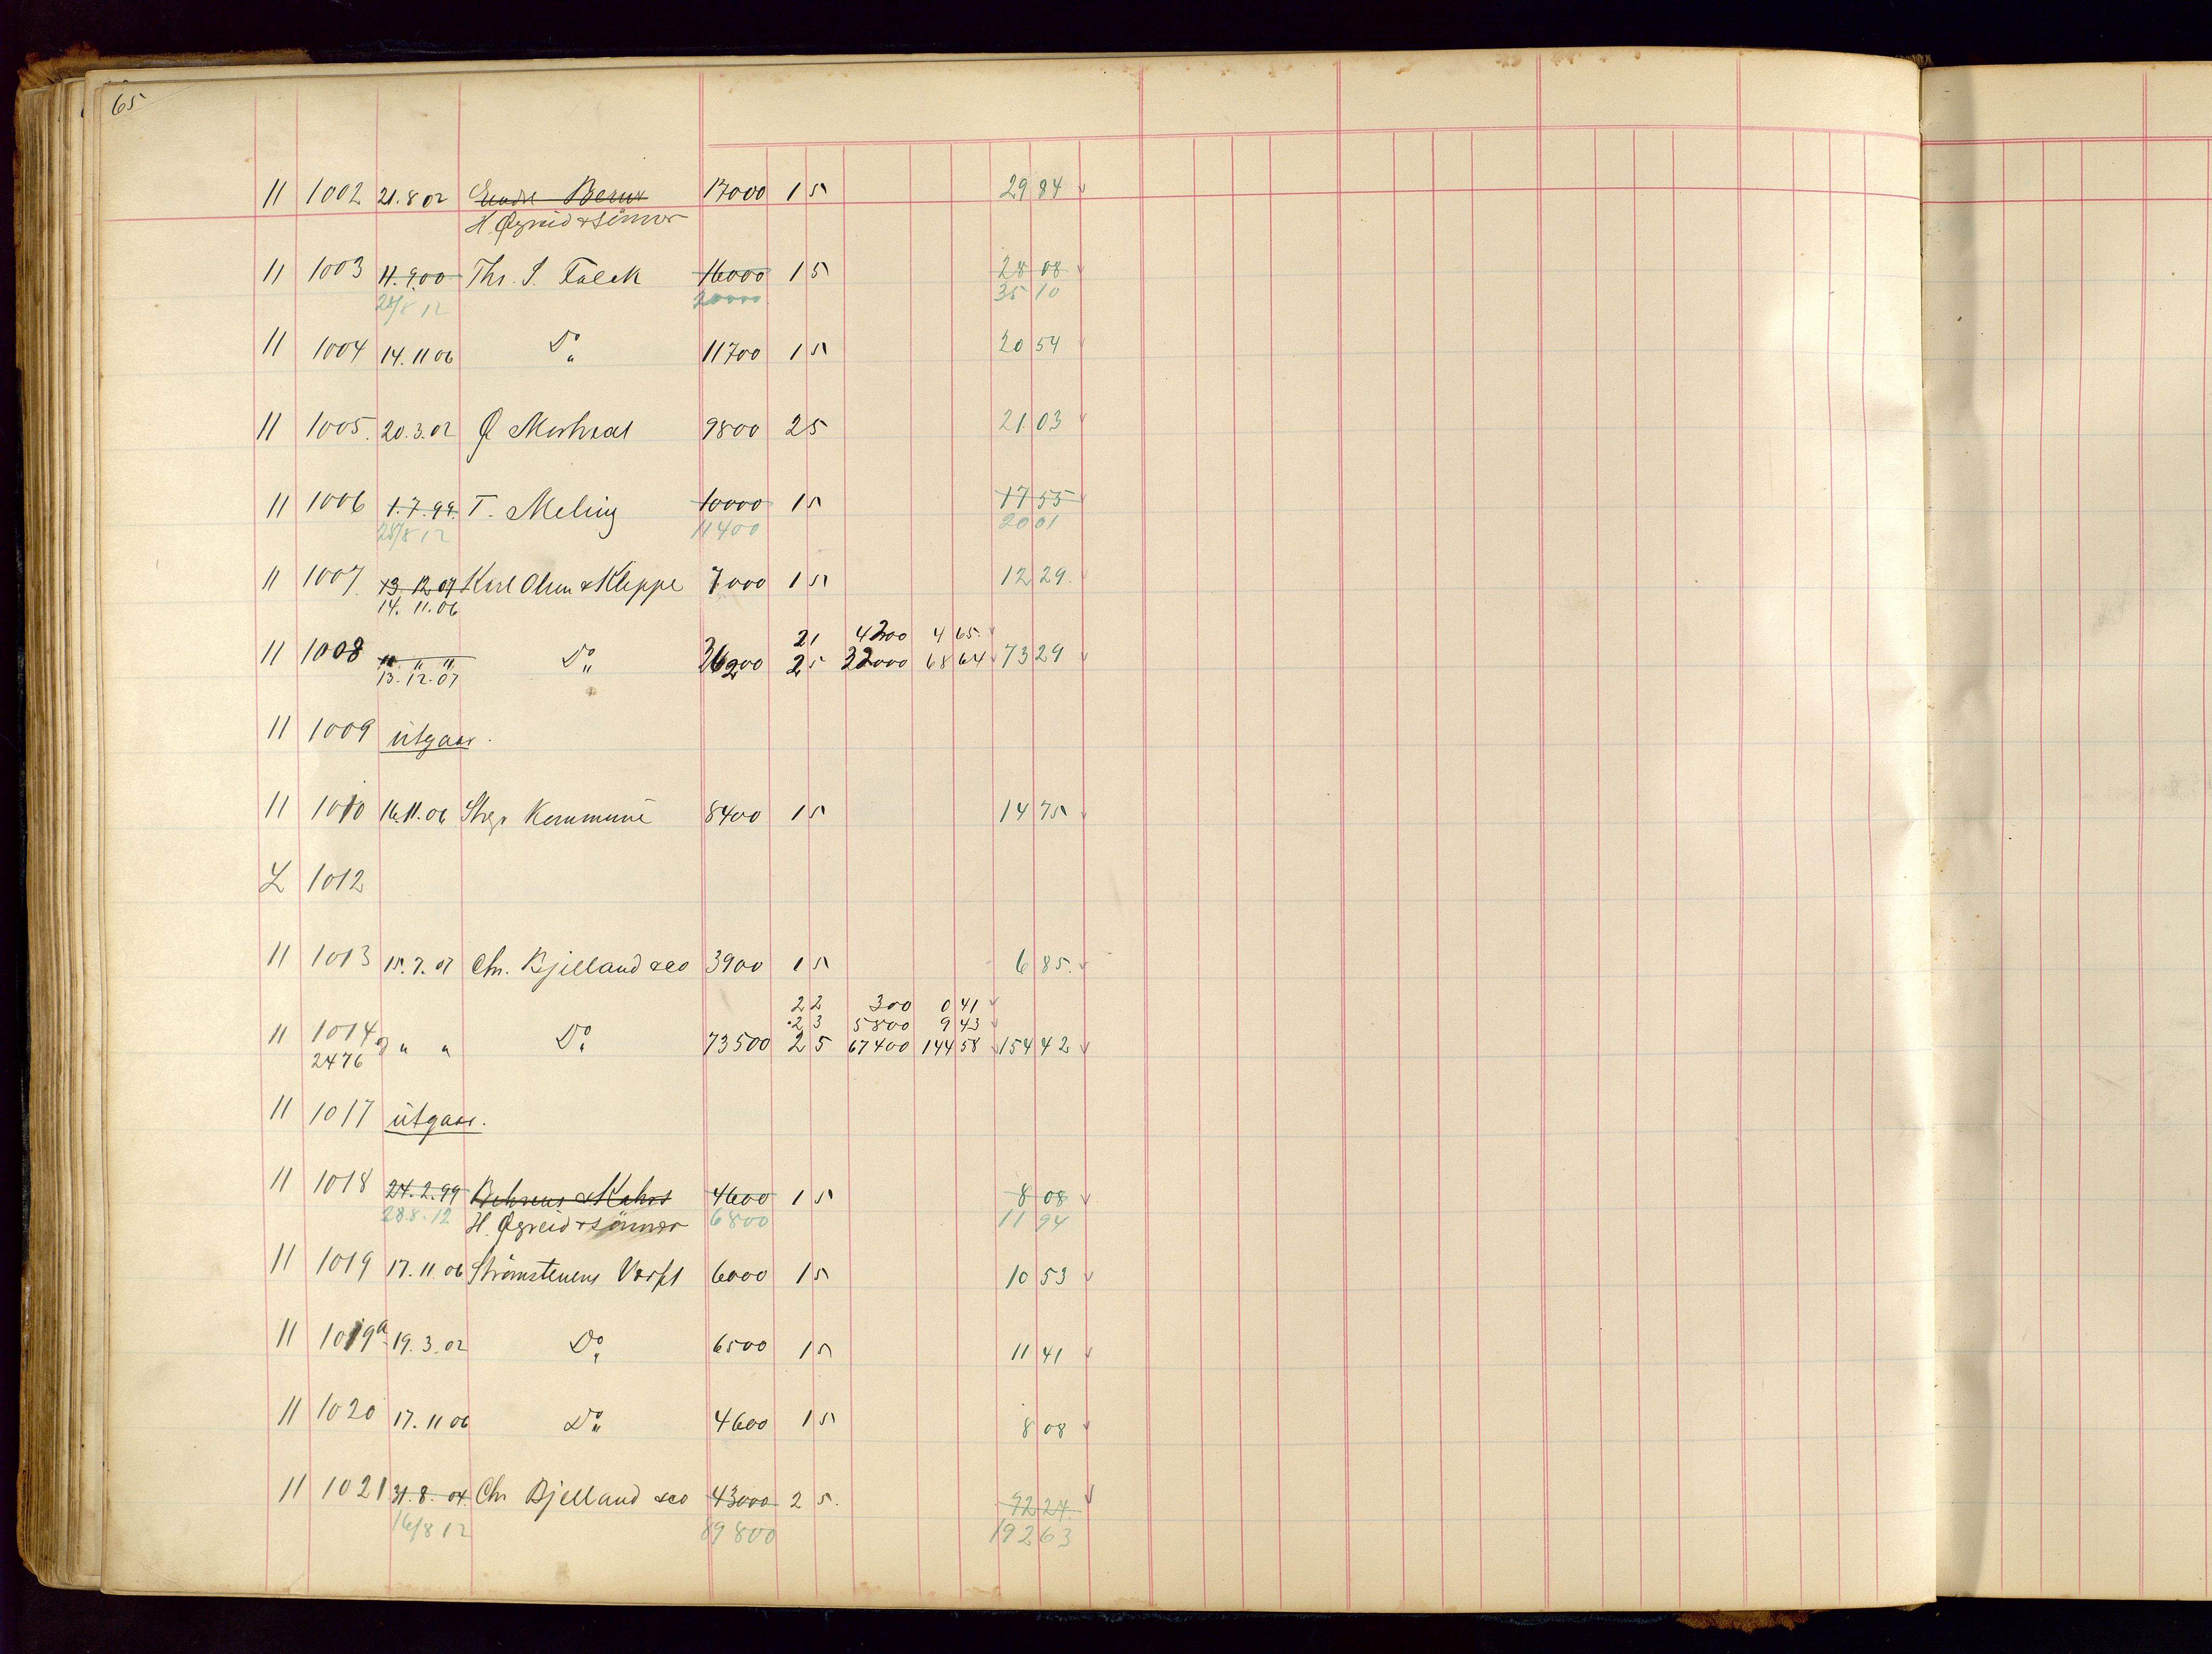 65
11 1002 21.8 02 Endre Berner 17000 1 5 29 84
H. Øgreid & Sönner
11 1003 11.9.00 Thr. S. Falck 16000 1 5 28 08
28/8 12 20000 35 10
11 1004 14.11 06 Do 11700 1 5 20 54
11 1005. 20.3.02 9800 2 5 21 03
11 1006 1.7.99. T. Meling 10000 1 5 17 55
28/8 12 11400 20 01
11 1007. 13.12 07 Karl Olsen & Kleppe 7000 1 5 12 29.
14.11.06
2 1 4200 4 65.
11 1008 " " " Do 36200 2 5 32000 68 64 73 29
13.12.07
11 1009 utgaar.
11 1010 16.11.06 Stvgr Kommune 8400 1 5 14 75
L 1012
11 1013 15.7.07 Chr. Bjelland & Co 3900 1 5 6 85.
2 2 300 0 41
2 3 5800 9 43
11 1014 " " Do 73500 2 5 67400 144 58 154 42
2476
11 1017 utgaar.
11 1018 24.2.99 Behrens & Kahrs 4600 1 5 8 08
28.8.12 H. Øgreid & Sönner 6800 11 94
11 1019 17.11.06 Strömstenens Værft 6000 1 5 10 53
11 1019a 19.3.02 Do 6500 1 5 11 41
11 1020 17.11 06 Do 4600 1 5 8 08
11 1021 31.8.04. Chr Bjelland & Co 43000 2 5. 92 24.
16/8 12 89800 192 63